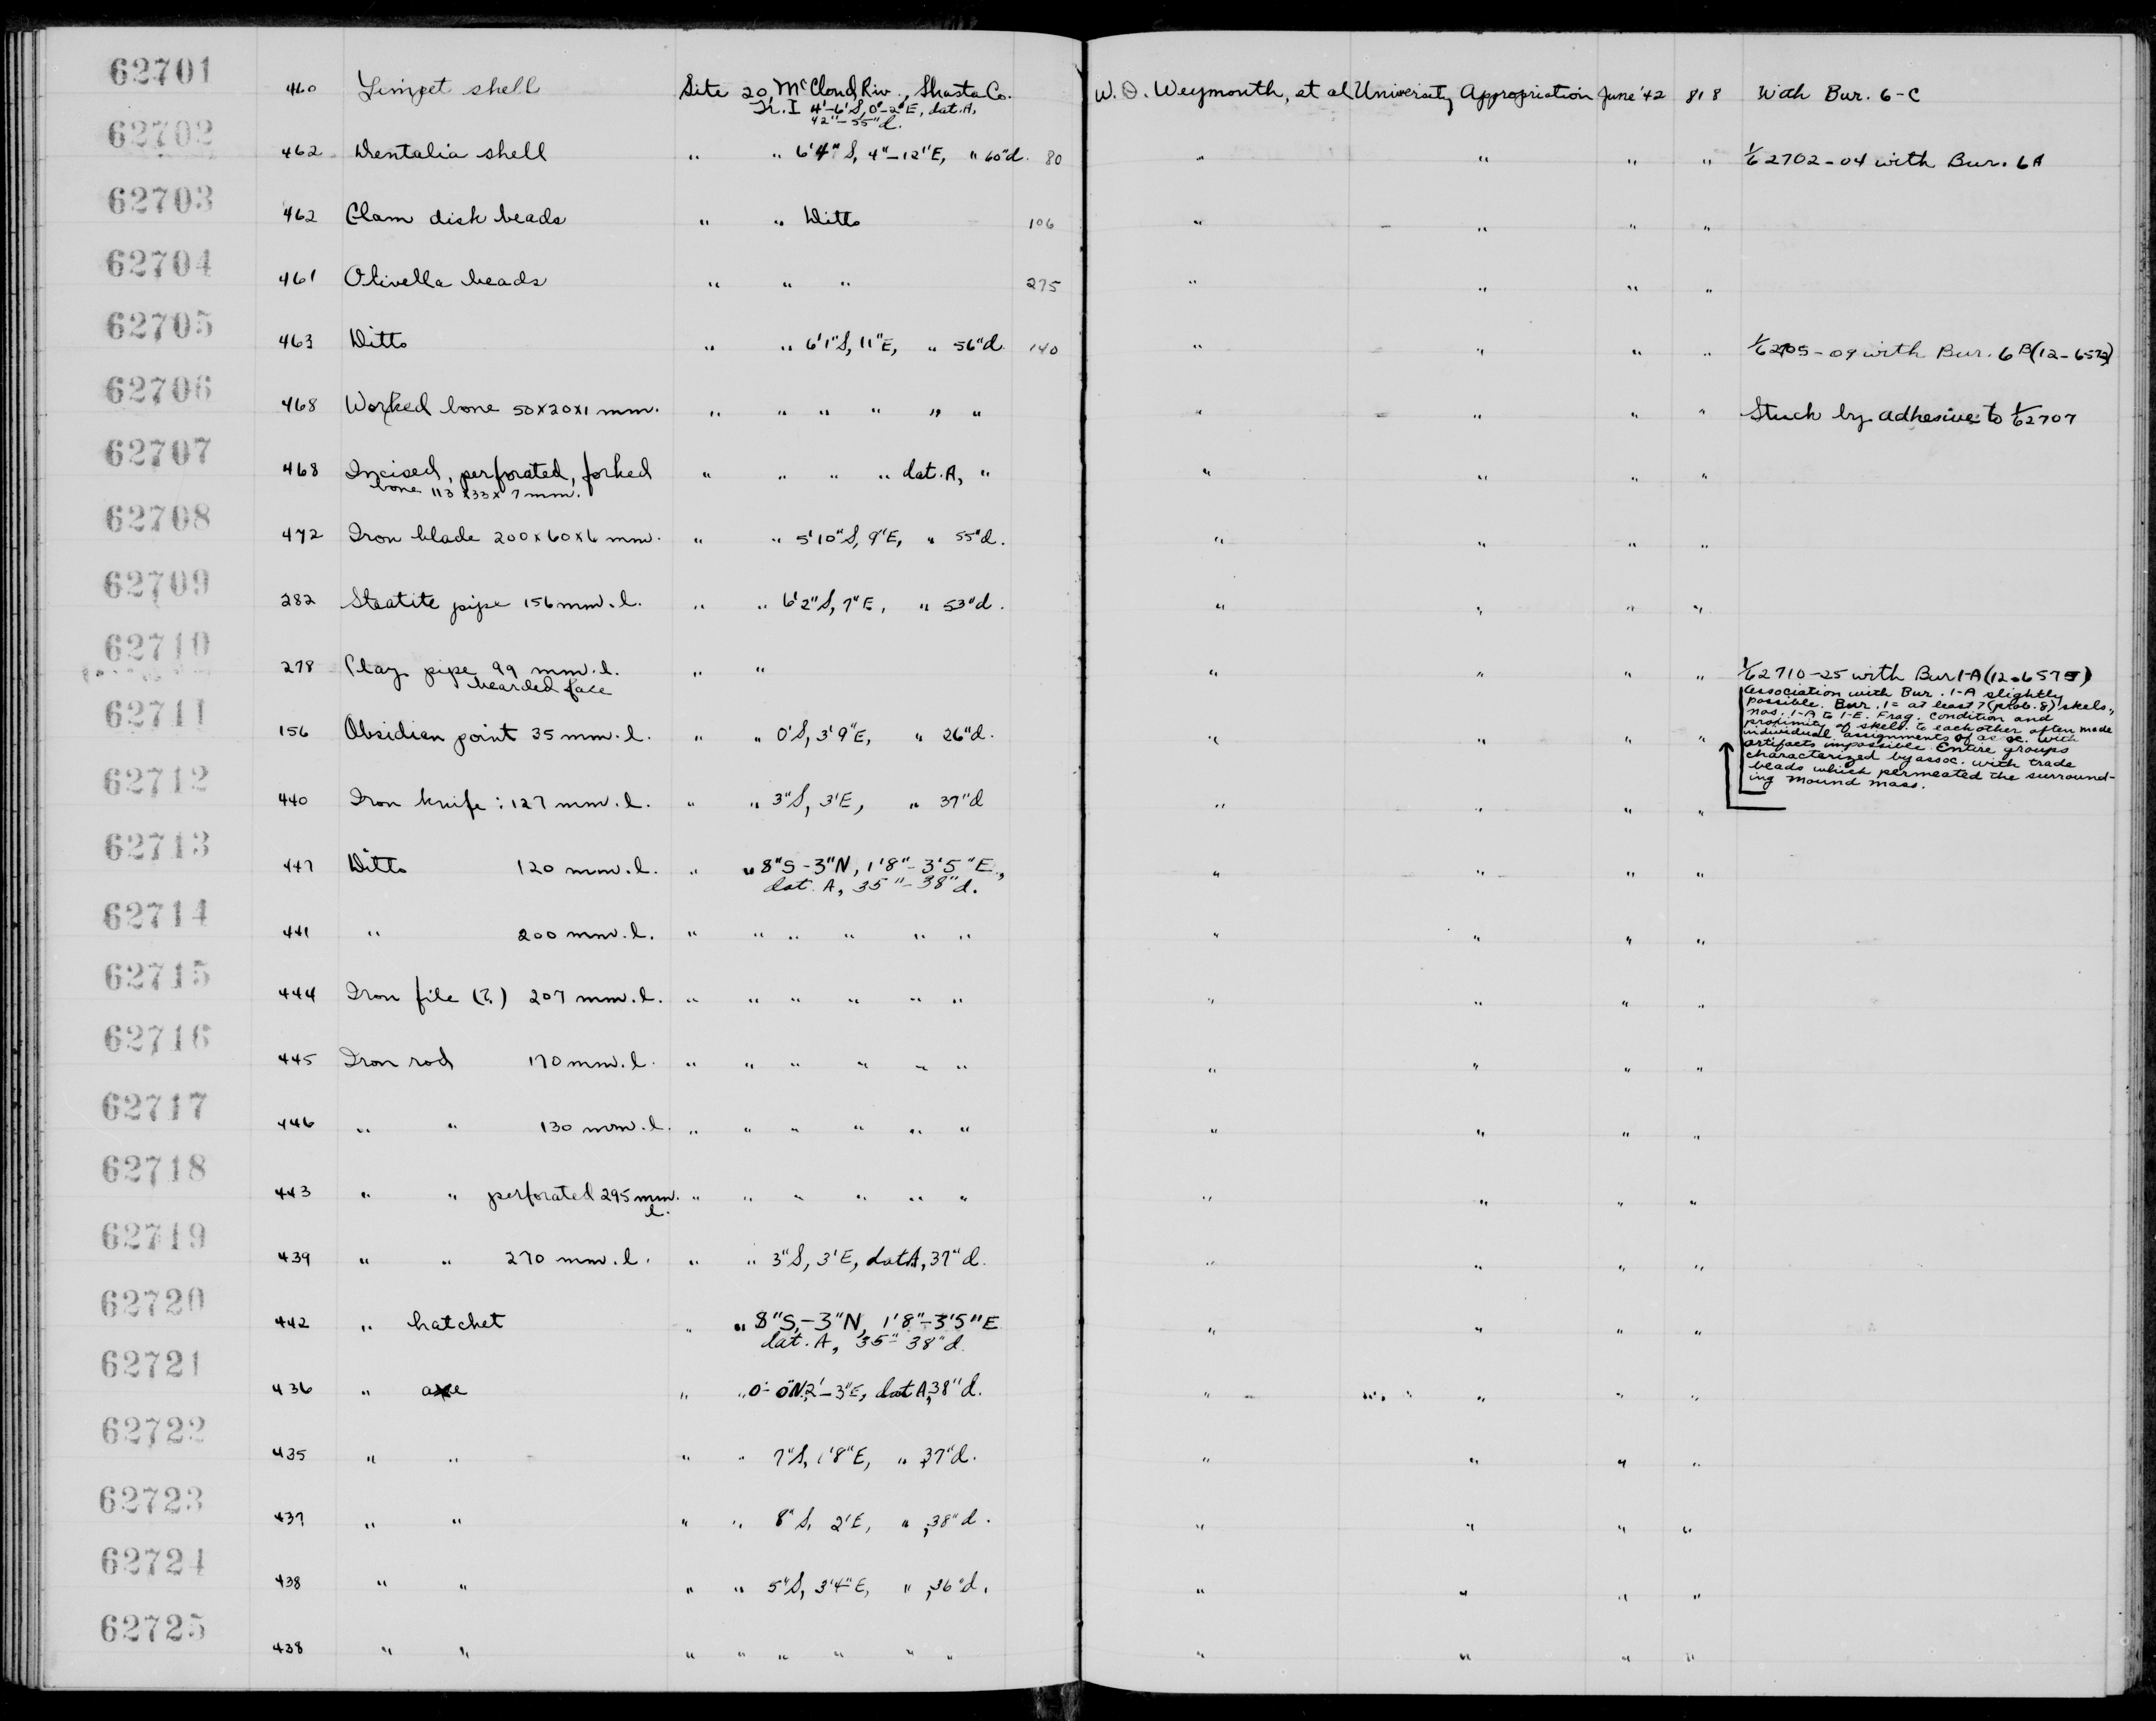 62701 460 Limpet shell Site 20, McCloud Riv., Shasta Co. W. D. Weymouth, et al University Appropriation June '42 818 With Bur. 6-C
Tr. I 4'-6'S, 0'-2'E, dat. A,
42"-55"d.
62702 462 Dentalia shell " " 6'4"S, 4"-12"E, " 60"d. 80 " " " " 1/62702-04 with Bur. 6A
62703 462 Clam disk beads " " Ditto 106 " " " "
62704 461 Olivella beads " " " 275 " " " "
62705 463 Ditto " " 6'1"S, 11"E, " 56"d. 140 " " " " 1/62705-09 with Bur. 6B (12-6572)
62706 468 Worked bone 50x20x1 mm. " " " " " " " " " " Stuck by adhesive to 1/62707
62707 468 Incised, perforated, forked " " " " dat. A, " " " " "
bone 113x33x7mm.
62708 472 Iron blade 200x60x6 mm. " " 5'10"S, 9"E, " 55"d. " " " "
62709 282 Steatite pipe 156mm. l. " " 6'2"S, 7"E, " 53"d. " " " "
62710 278 Clay pipe 99 mm. l. " " " " " " 1/62710-25 with Bur 1-A (12-6575)
bearded face
Association with Bur. 1-A slightly
possible. Bur. 1 = at least 7 (prob. 8) skels.,
nos. 1-A to 1-E. Frag. condition and
proximity of skels. to each other often made
individual assignments of assoc. with
artifacts impossible. Entire groups
characterized by assoc. with trade
beads which permeated the surround-
ing mound mass.
62711 156 Obsidian point 35 mm. l. " " 0'S, 3'9"E, " 26"d. " " " "
62712 440 Iron knife: 127 mm. l. " " 3"S, 3'E, " 37"d " " " "
62713 447 Ditto 120 mm. l. " " 8"S-3"N, 1'8"-3'5"E., " " " "
dat. A, 35"-38"d.
62714 441 " 200 mm. l. " " " " " " " " " "
62715 444 Iron file (?) 207 mm. l. " " " " " " " " " "
62716 445 Iron rod 170 mm. l. " " " " " " " " " "
62717 446 " " 130 mm. l. " " " " " " " " " "
62718 443 " " perforated 295 mm. " " " " " " " " " "
l.
62719 439 " " 270 mm. l. " " 3"S, 3'E, dat A, 37"d. " " " "
62720 442 " hatchet " " 8"S,-3"N, 1'8"-3'5"E " " " "
dat. A, 35"-38"d.
62721 436 " axe " " 0'-0"N, 2'-3"E, dat A, 38"d. " " " "
62722 435 " " " " 7"S, 1'8"E, " 37"d. " " " "
62723 437 " " " " 8"S, 2'E, " , 38"d. " " " "
62724 438 " " " " 5"S, 3'4"E, " , 36"d. " " " "
62725 438 " " " " " " " " " " " "